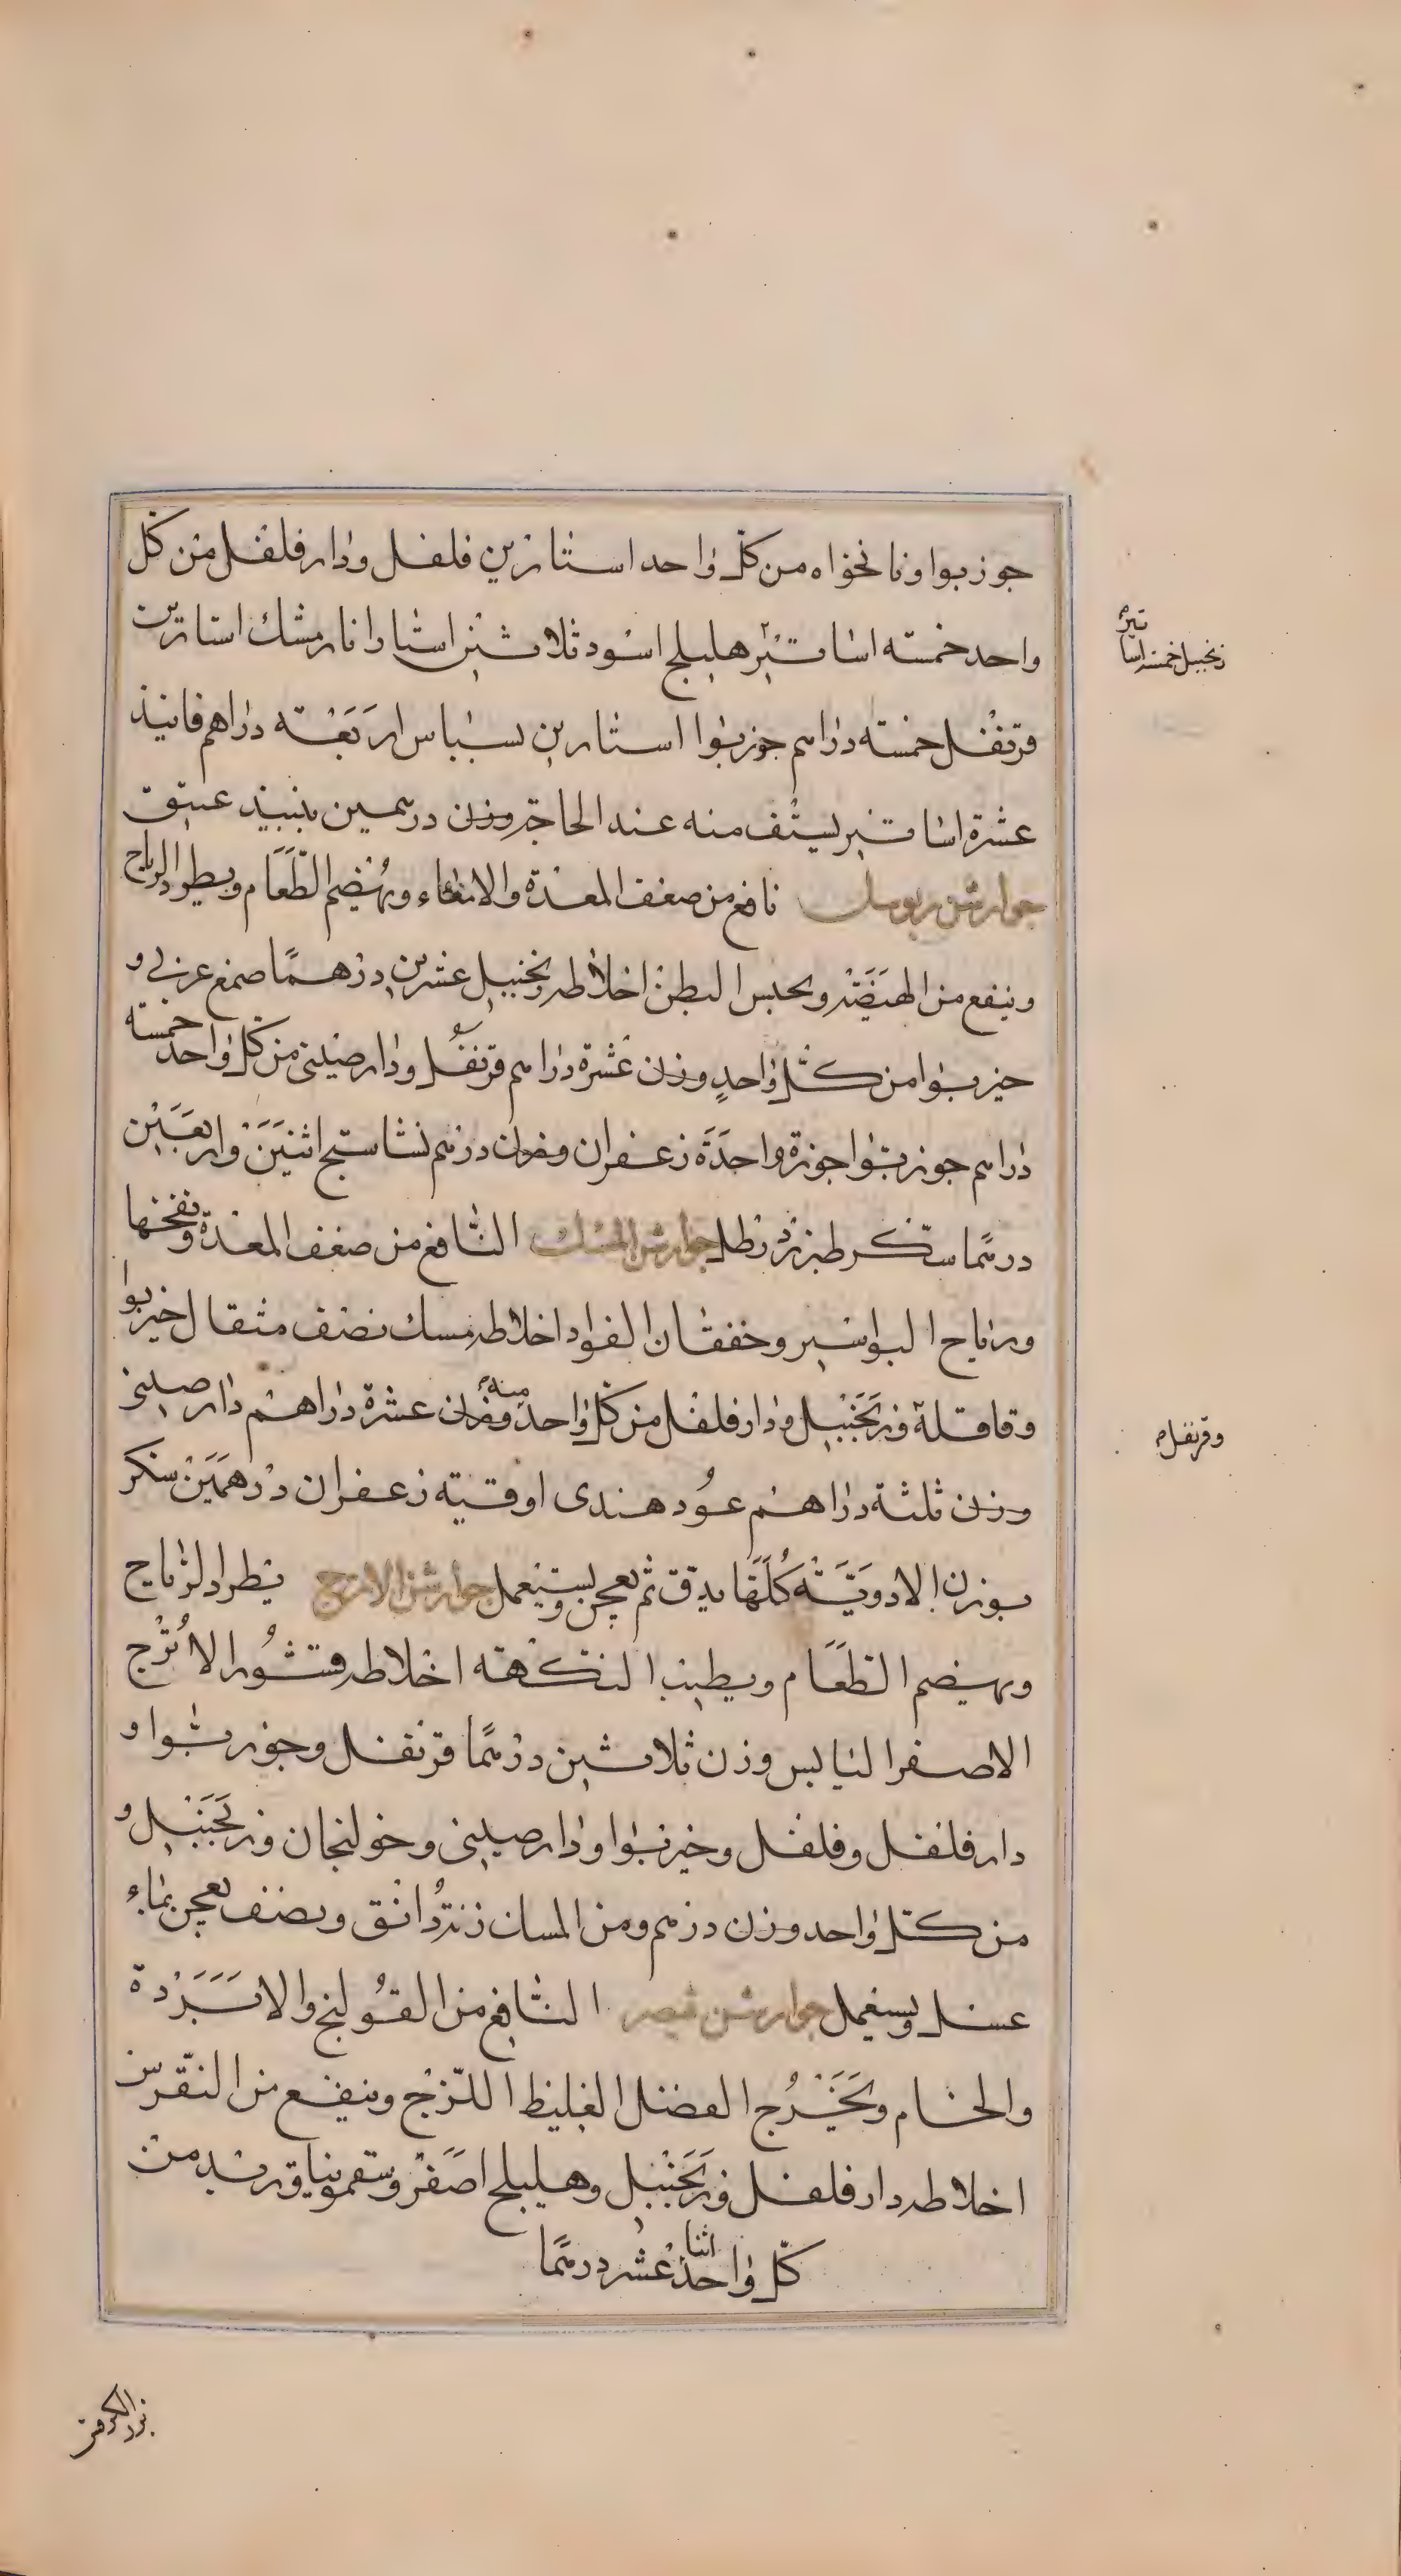 جوزبوا ونانخواه من كل واحد استارين فلفل ودار فلفل من كل
واحد خمسه اساتير هليلج اسود ثلاثين استارا نارمشك استارين
زنجبيل خمسة اساتير
قرنفل خمسه دراهم جوزبوا استارين بسباس اربعة دراهم فانيذ
عشرة اساتير يستف منه عند الحاجة وزن درهمين بنبيذ عتيق
جوارشن نافع من ضعف المعدة والامعاء ويهضم الطعام ويطرد الرياح
وينفع من الهيضة ويحبس البطن اخلاطه زنجبيل عشرين درهما صمغ عربي و
خيربوا من كل واحد وزن عشرة دراهم قرنفل ودارصيني من كل واحد خمسة
دراهم جوزبوا جوزة واحدة زعفران وزن درهم نشاستج اثنين واربعين
درهما سكر طبرزد رطل جوارشن المسك النافع من ضعف المعدة ونفخها
ورياح البواسير وخفقان الفواد اخلاطه مسك نصف مثقال خيربوا
وقاقلة وزنجبيل ودار فلفل من كل واحد منه وزن عشرة دراهم دارصيني
وقرنفل
وزن ثلثة دراهم عود هندى اوقية زعفران درهمين سكر
بوزن الادوية كلها يدق ثم يعجن ويستعمل جوارشن الاترج يطرد الرياح
ويهضم الطعام ويطيب النكهة اخلاطه قشور الاترج
الاصفر اليابس وزن ثلاثين درهما قرنفل وجوزبوا و
دار فلفل وفلفل وخيربوا ودارصيني وخولنجان وزنجبيل و
من كل واحد وزن درهم ومن المسان زنة دانق ونصف يعجن بماء
عسل ويستعمل جوارشن قيصر النافع من القولنج والابردة
والخام ويخرج الفضل الغليظ اللزج وينفع من النقرس
اخلاطه دار فلفل وزنجبيل وهليلج اصفر وسقمونيا وتربد من
كل واحد اثنا عشر درهما
بزر الكرفس